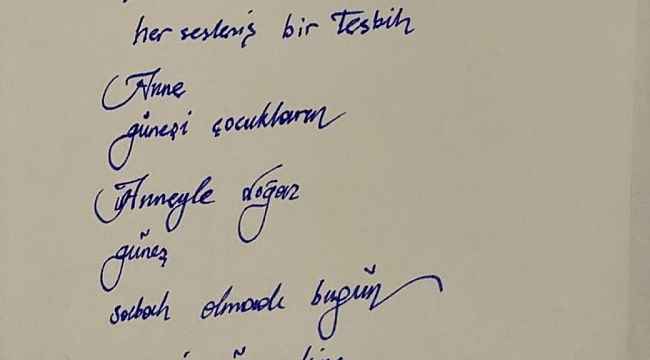 her sesleniş bir tesbih
Anne
güneşi çocukların
Anneyle doğar
güneş
sabah olmadı bugün